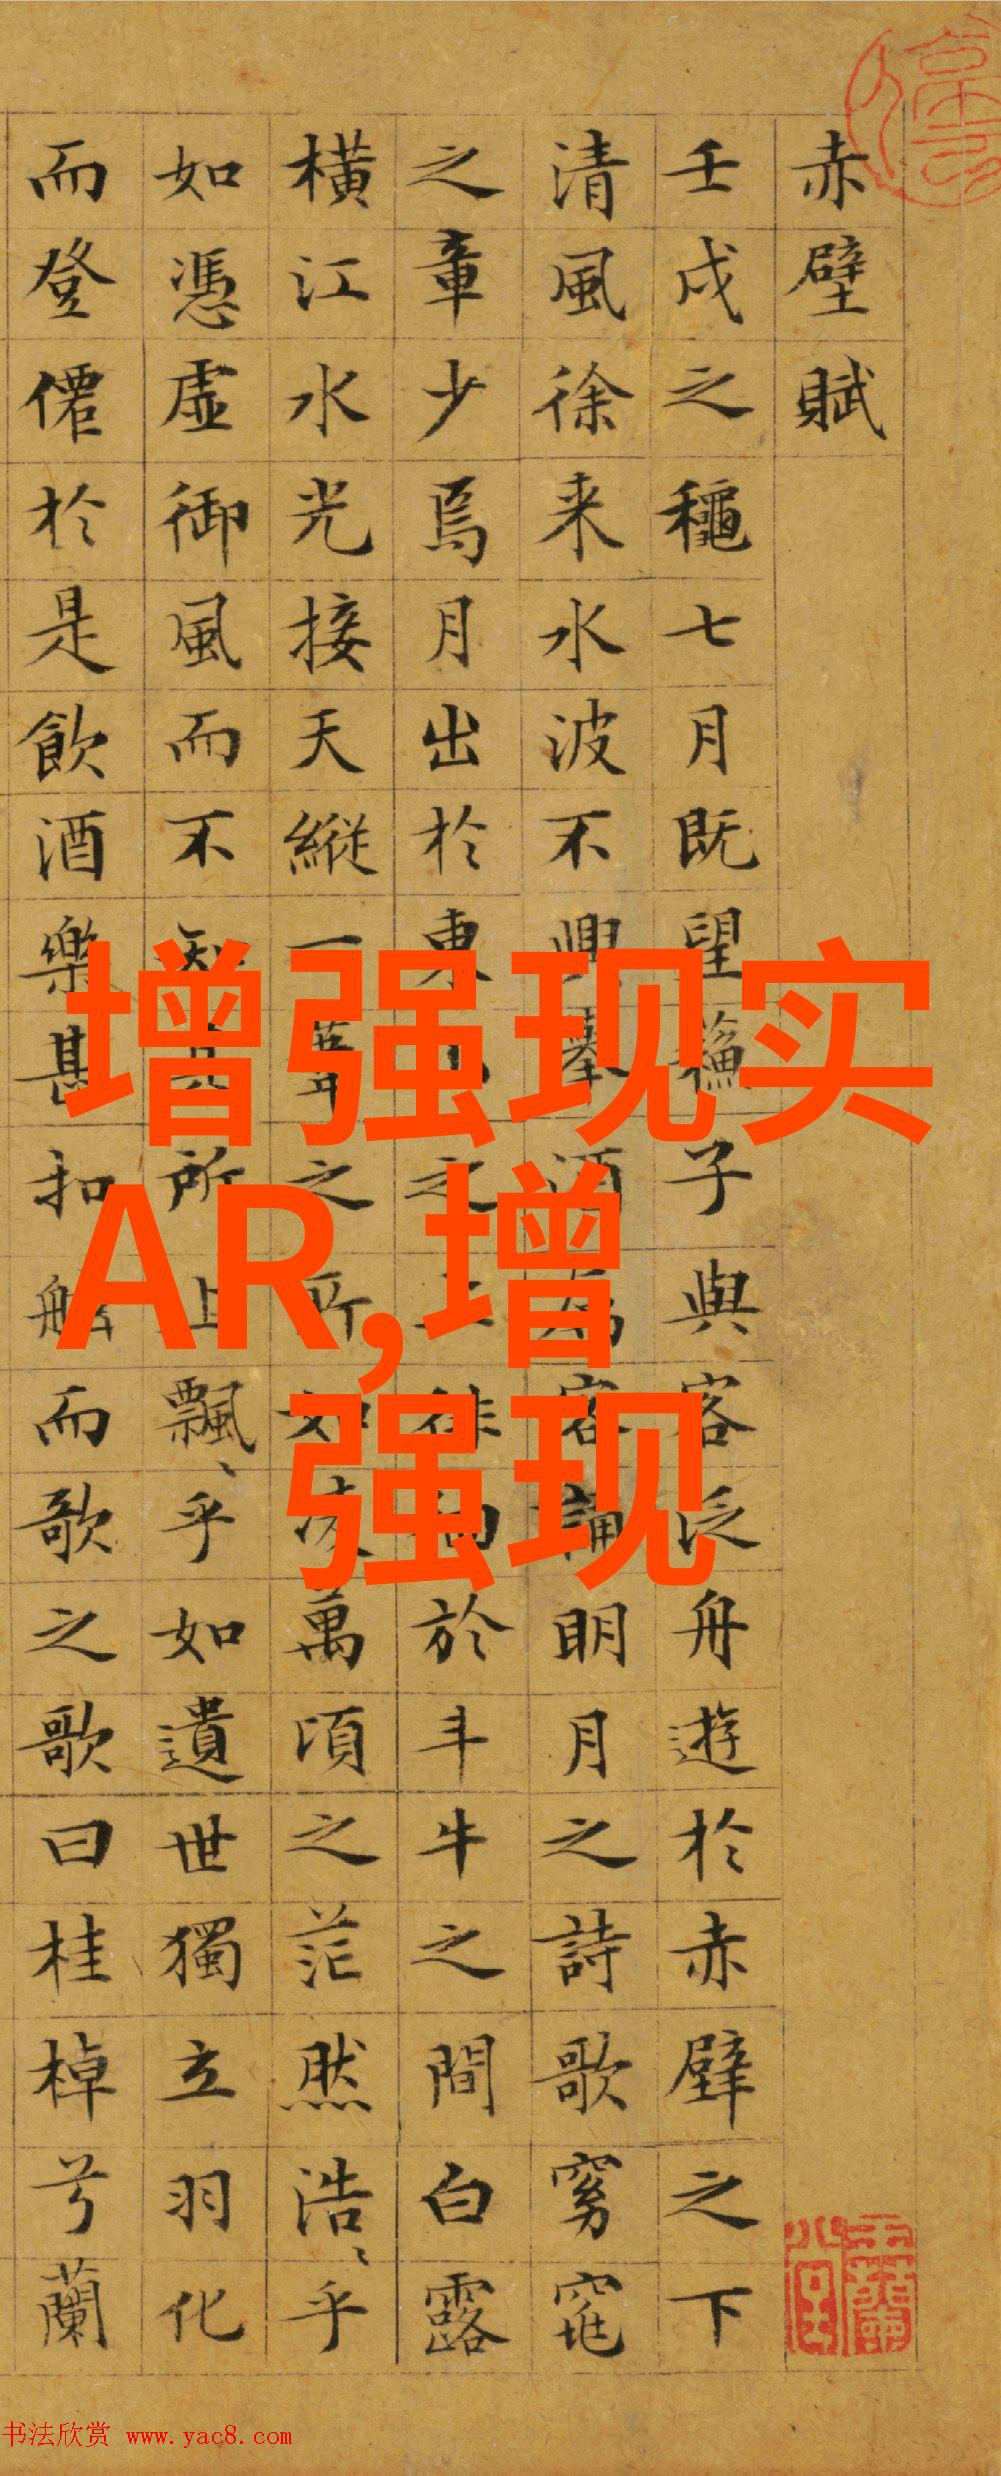 赤壁賦
壬戌之穐七月既望蘓子與客泛舟遊於赤壁之下
清風徐来水波不興舉酒属客誦明月之詩歌窈窕
之章少焉月出於東山之上徘徊於斗牛之間白露
橫江水光接天縱一葦之所如凌萬頃之茫然浩〻乎
如憑虛御風而不知其所止飄〻乎如遺世獨立羽化
而登僊於是飲酒樂甚扣舷而歌之歌曰桂棹兮蘭
增强现实
AR,增
强现
书法欣赏 www.yac8.com